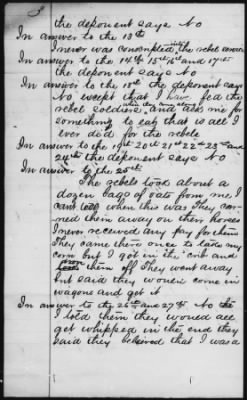 3
the deponent says No
In answer to the 13th
I never was conscripted into the rebel army
In answer to the 14th 15th 16th and 17th
the deponent says No
In answer to the 18th the deponent says
No except that I have fed the
rebel soldiers when they came along and ask me for
something to eat, that is all I
ever did for the rebels
In answer to the 19th 20th 21st 22nd 23rd and
24th the deponent says No
In answer to the 25th
The rebels took about a
dozen bags of oats from me, I
when this was they car
ried them away on their horses
I never received any pay for them
They came there once to take my
corn but I got in the crib and
them off They went away
but said they would come in
wagons and get it
In answer to the 26th and 27th No
I told them they would all
get whipped in the end they
said they believed that I was a